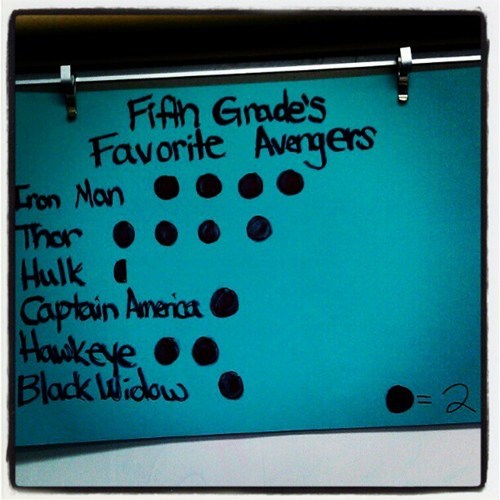 Fifth Grade's
Favorite Avengers
Iron Man
Thor
Hulk
Captain America
Hawkeye
Black Widow
= 2